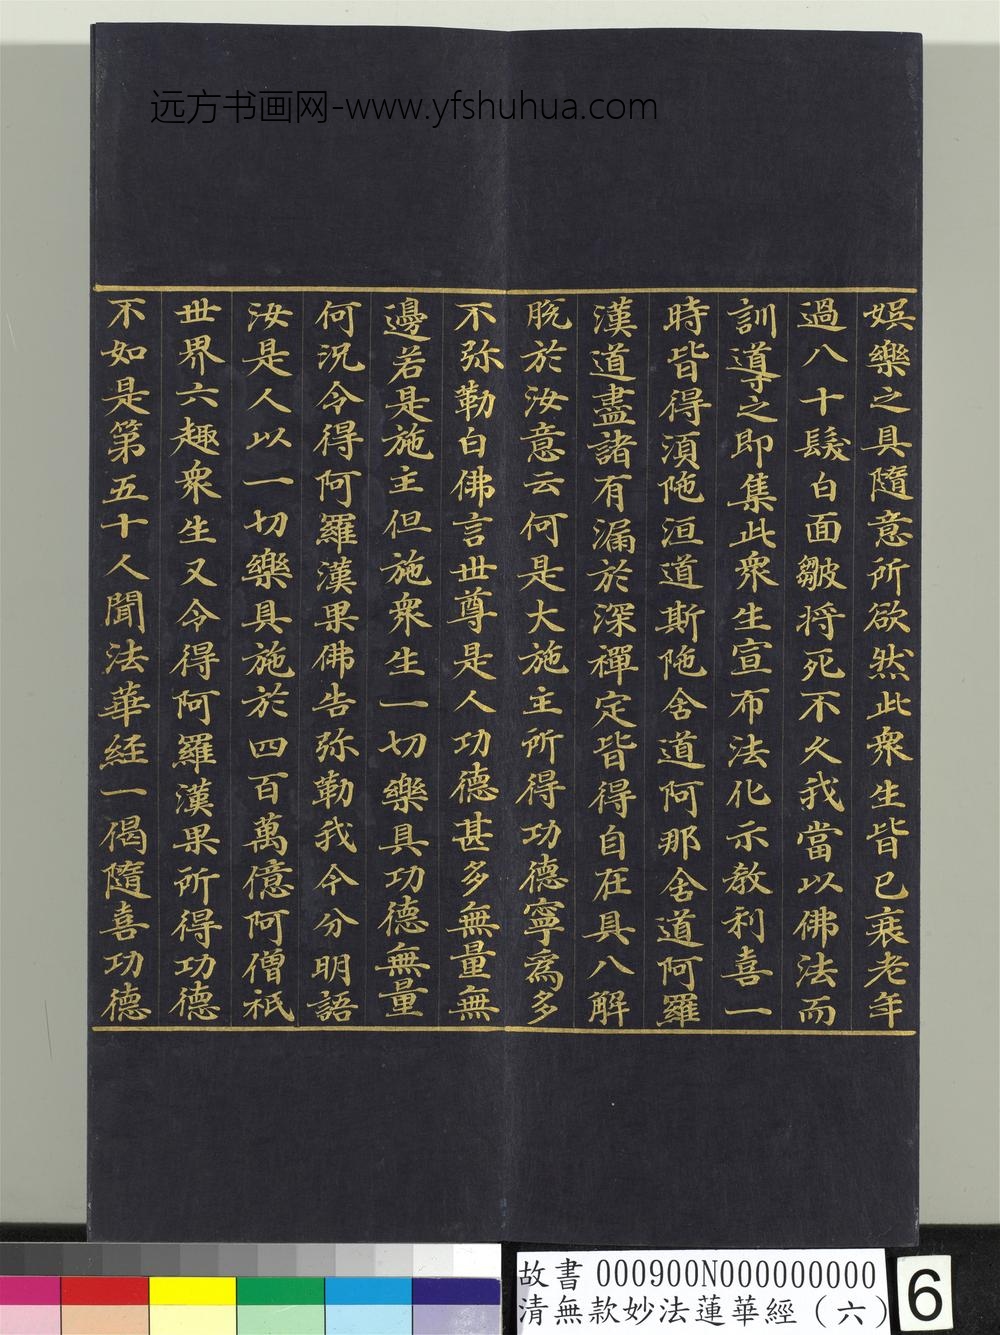 远方书画网-www.yfshuhua.com
娛樂之具隨意所欲然此衆生皆已衰老年
過八十髮白面皺將死不久我當以佛法而
訓導之即集此衆生宣布法化示教利喜一
時皆得須陁洹道斯陁含道阿那含道阿羅
漢道盡諸有漏於深禪定皆得自在具八解
脫於汝意云何是大施主所得功德寧為多
不弥勒白佛言世尊是人功德甚多無量無
邊若是施主但施衆生一切樂具功德無量
何況令得阿羅漢果佛告弥勒我今分明語
汝是人以一切樂具施於四百萬億阿僧祇
世界六趣衆生又令得阿羅漢果所得功德
不如是第五十人聞法華經一偈隨喜功德
故書 000900N000000000
清無款妙法蓮華經（六）
6